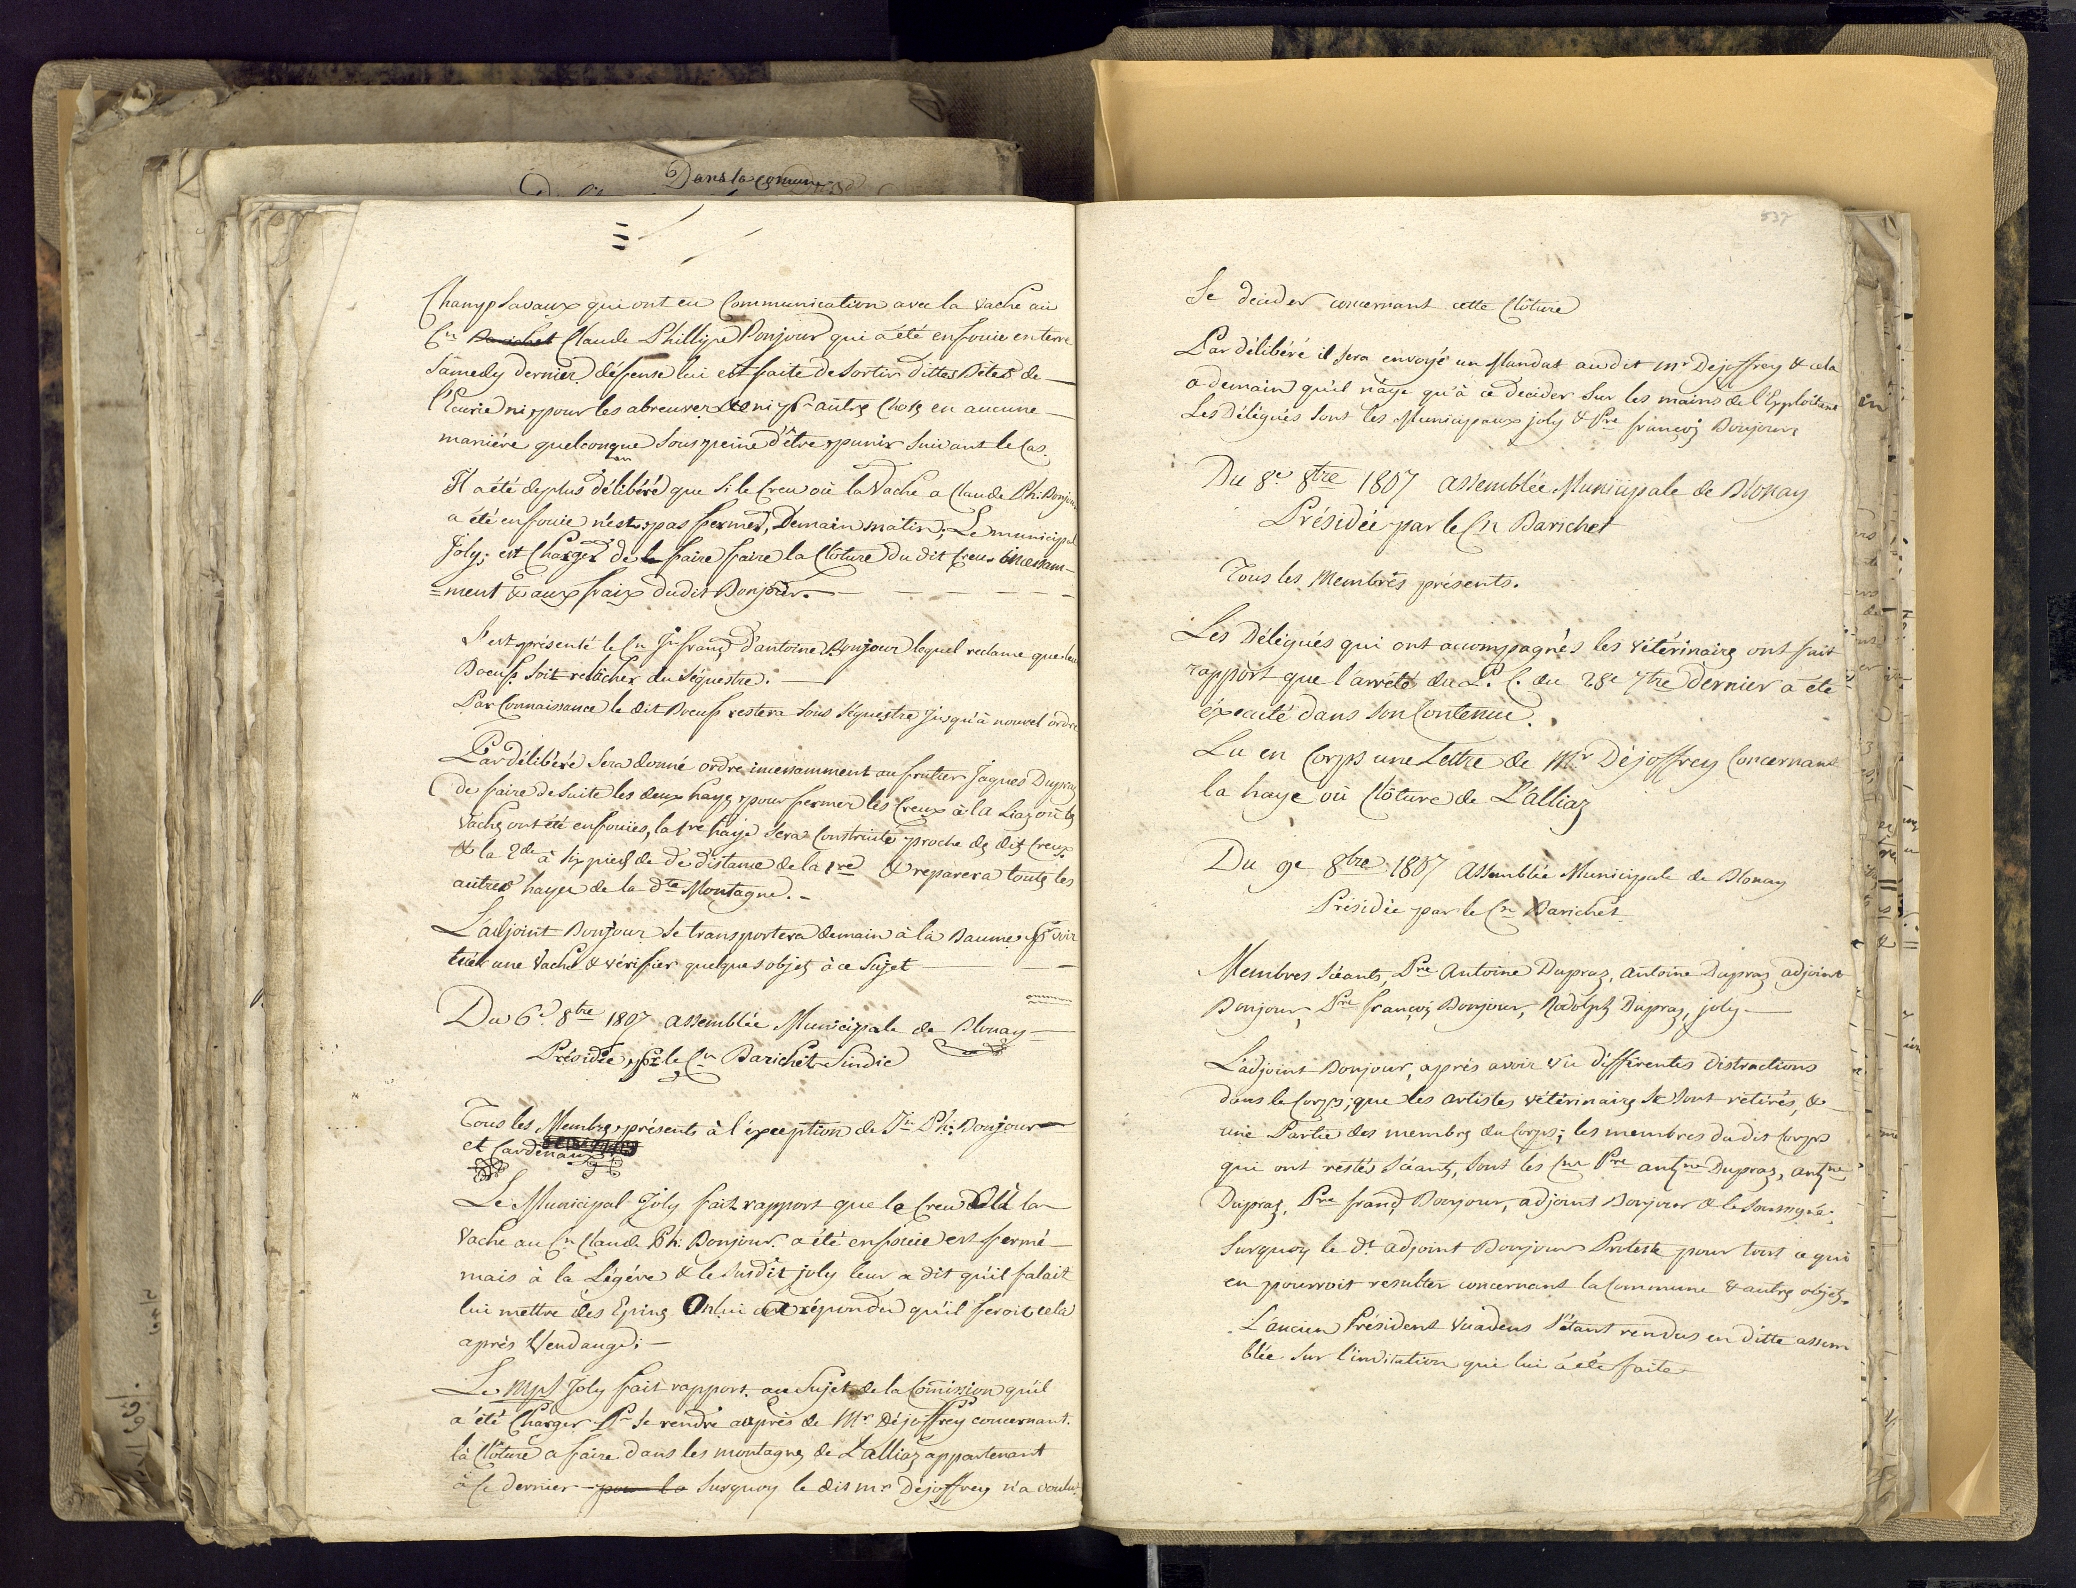 Dans la comune
Champ Savaux qui ont eu Communication avec la Vache au
Cn Barichet Claude Phillipe Bonjour qui a été enfouie en terre
Samedy dernier, défense lui est faite de sortir dittes Bêtes de
l'Ecurie ni pour les abreuver ni pr autre Chose en aucune
maniére quelconque sous peine d'être punir suivant le Cas.
Il a été de plus délibéré que si le Creu où la Vache a Claude Ph: Bonjour
a été enfouie n'est pas fermer, Demain matin, Le municipal
Joly; est Charger de faire faire la Clôture du dit Creux incessam-
=ment & aux fraix dudit Bonjour.
S'est présenté le Cn Jn franç d'antoine Bonjour lequel reclame que leur
Boeuf soit relâcher du séquestre.
Par Connaissance le dit Boeuf restera sous séquestre jusqu'à nouvel ordre
Par délibéré sera donné ordre incessamment au fruitier Jaques Dupraz
de faire de suite les deux hayes pour fermer les Creux à la Liaz où les
Vaches ont été enfouies, la 1re haye sera construite proche des dits Creux
& la 2de à six pieds de distance de la 1re & reparera toutes les
autres hayes de la dte Montagne.
L'adjoint Bonjour se transportera demain à la Baume pr voir
tuér une Vache & vérifier quelques objets à ce sujet
Du 6e 8bre 1807 assemblée Municipale de Blonay
Présidée pr le Cn Barichet Sindic
Tous les Membres présents à l'exception de Jn Ph: Bonjour
et Cardenaux
Le Municipal Joly fait rapport que le Creu Où la
Vache au Cn Claude Ph: Bonjour a été enfouie est fermé
mais à la Légére & le susdit joly leur a dit qu'il falait
lui mettre des Epines On lui a répondu qu'il feroit cela
aprés Vendange;
Le Mpl Joly fait rapport au Sujet de la Comission qu'il
a été Charger Pr se rendre auprés de Mr Déjoffrey concernant
la Clôture a faire dans les montagnes de L'alliaz appartenant
à ce dernier pour la Surquoy le dit mr Déjoffrey n'a voulu
537
Se décider concernant cette Clôture
Par délibéré il sera envoyé un Mandat audit mr Dejoffrey & cela
a demain qu'il n'aye qu'à ce decider sur les mains de l'Exploitant
Les Délégués sont les Municipaux joly & Pre françois Bonjour
Du 8e 8bre 1807 assemblée Municipale de Blonay
Présidée par le Cn Barichet
Tous les Membres présents.
Les Délégués qui ont accompagnés les vétérinaires ont fait
rapport que l'arrêté du P. C. du 28e 7bre Dernier a été
éxecuté dans son Contenu.
Lu en Corps une Lettre de Mr Déjoffrey Concernant
la haye où Clôture de L'alliaz
Du 9e 8bre 1807 Assemblée Municipale de Blonay
Présidée par le Cn Barichet
Membres Séants, Pre Antoine Dupraz, Antoine Dupraz adjoint
Bonjour, Pre françois Bonjour, Rodolph Dupraz, joly
L'adjoint Bonjour, aprés avoir vu différentes distractions
dans le Corps; que les artistes vétérinaires se sont rétirés, &
une Partie des membres du Corps; les membres du dit Corps
qui ont restés Séants, sont les Cns Pre antne Dupraz, antne
Dupraz, Pre franç Bonjour, adjoint Bonjour & le soussigné.
Surquoy le dt adjoint Bonjour Proteste pour tout ce qui
en pourroit resulter concernant la Commune & autres objets.
L'ancien Président Vuadens s'étant rendus en ditte assem
blée sur l'invitation qui lui a été faite